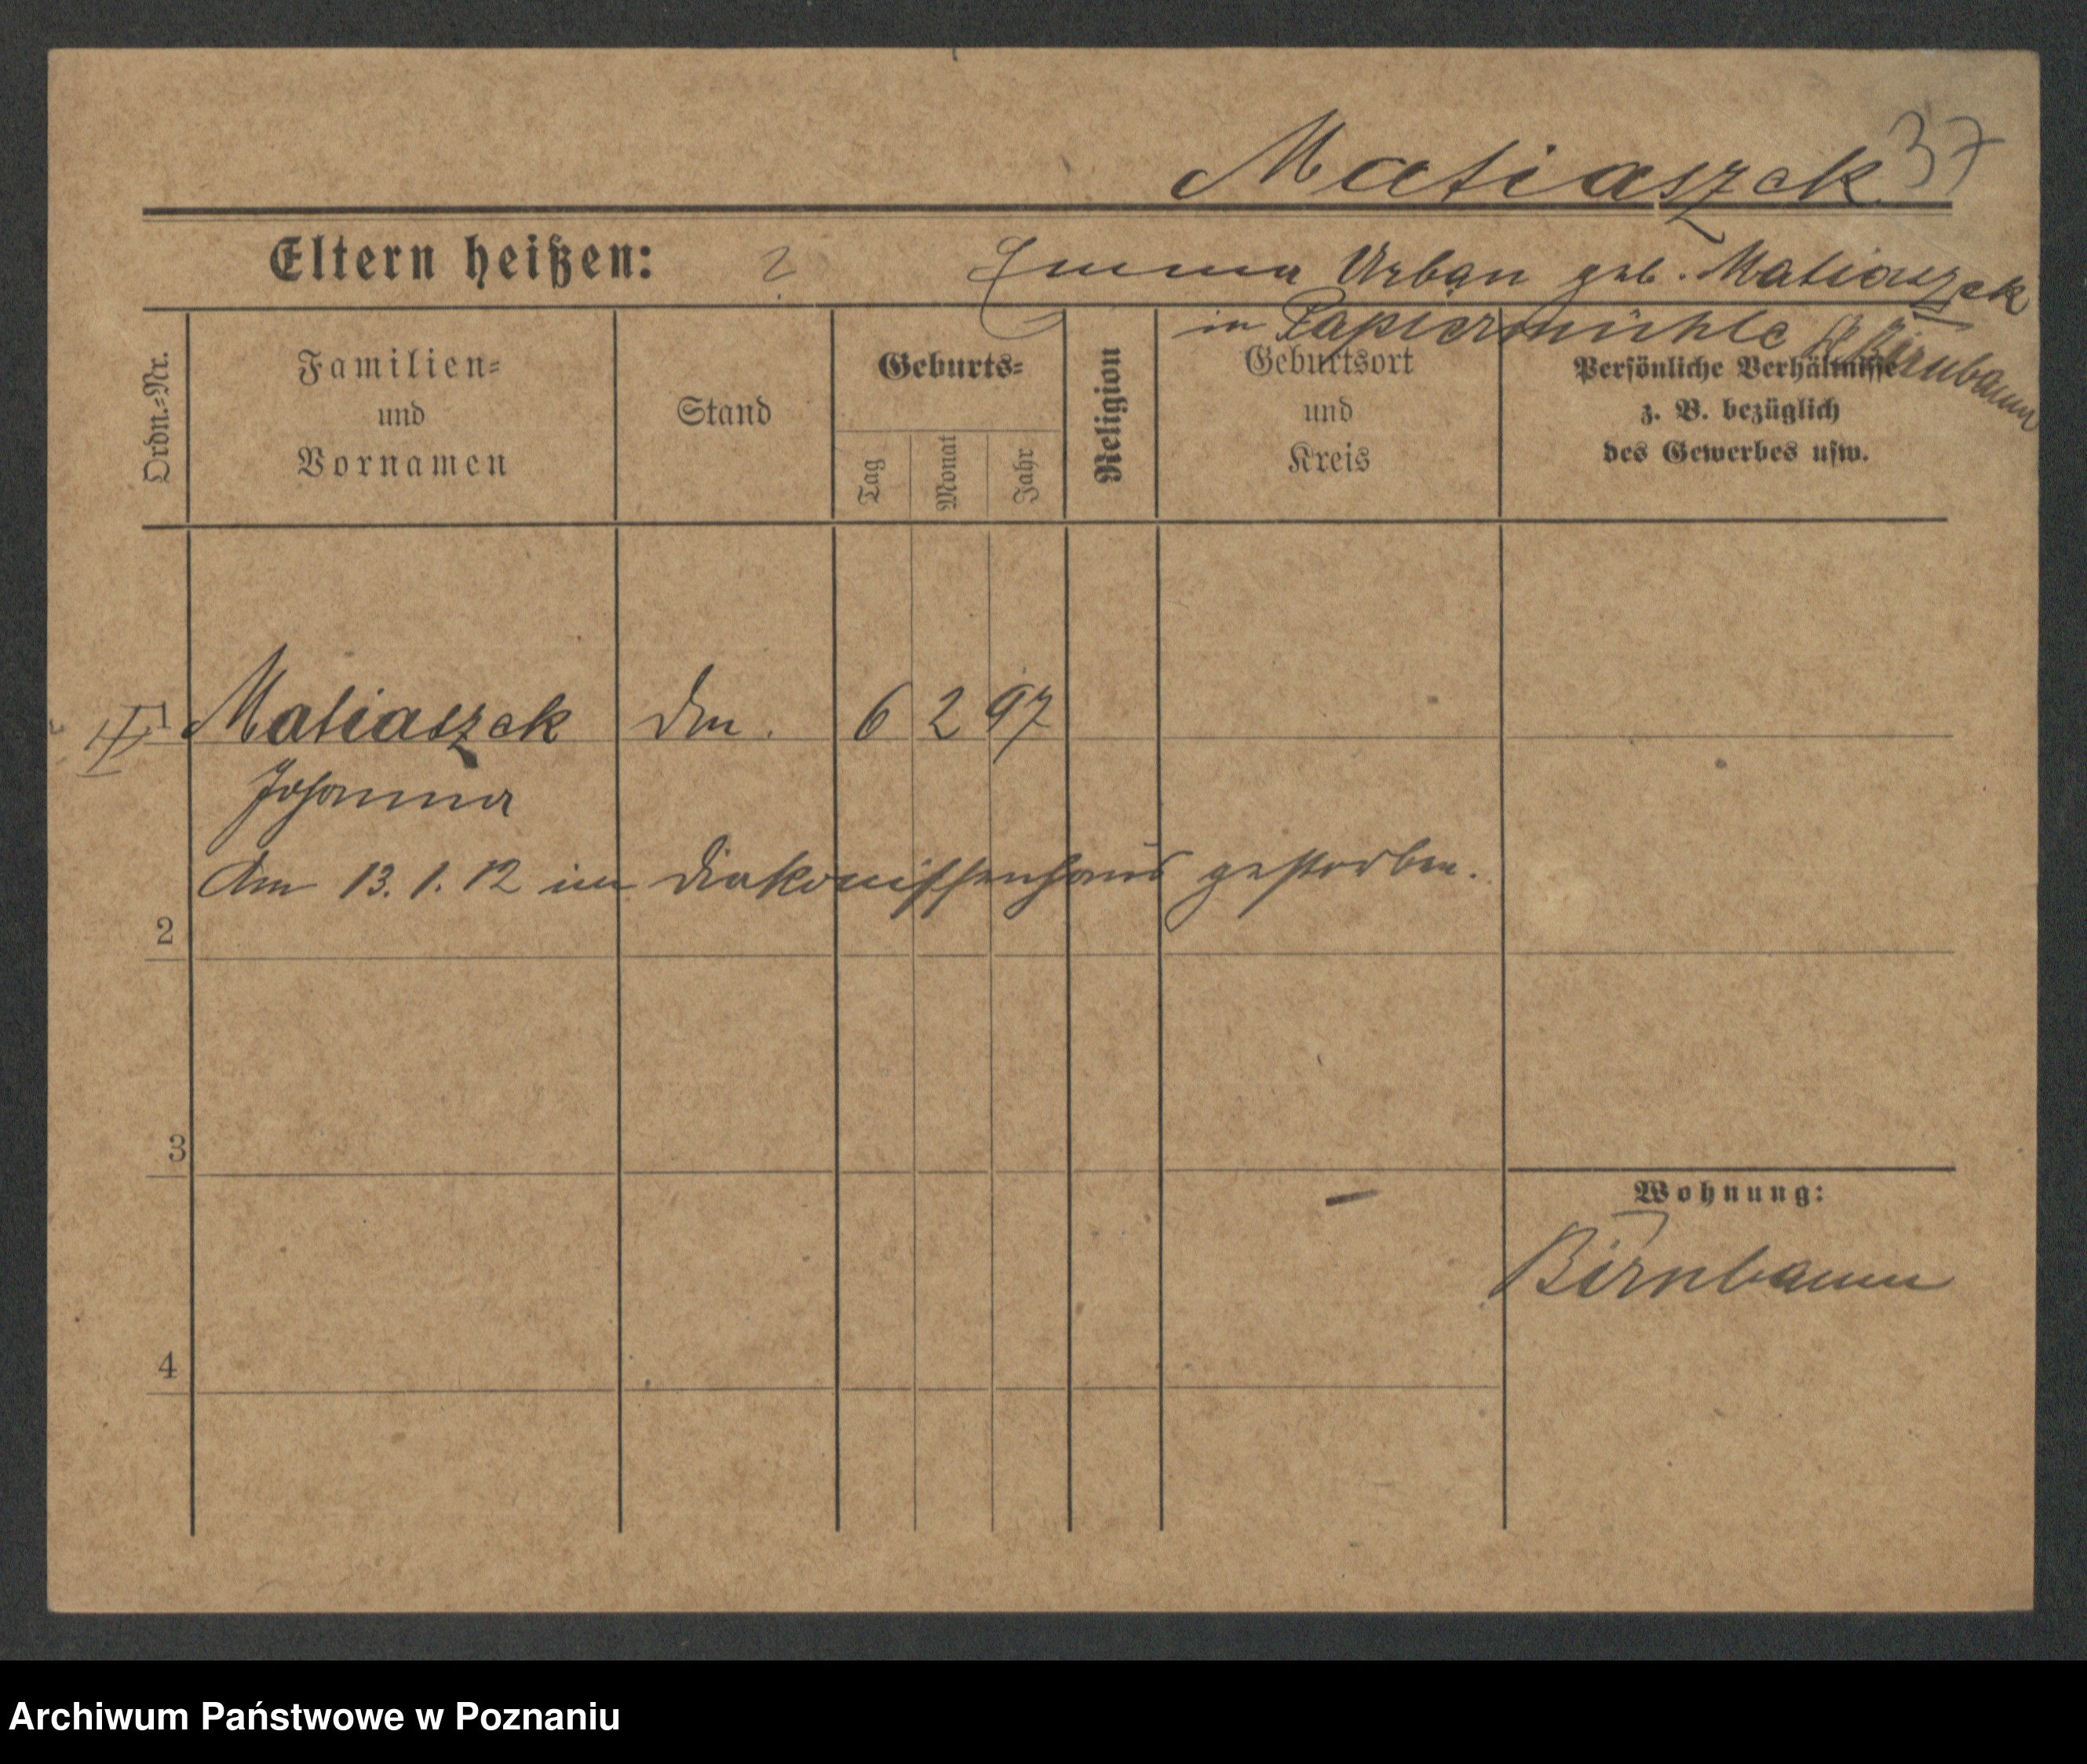 Matiaszak 37
Eltern heißen: ? Emma Urban geb. Matiaszak
in Papiermühle Kr. Birnbaum
Ordn.=Nr.
Familien=
und
Vornamen
Stand
Geburts=
Tag
Monat
Jahr
Religion
Geburtsort
und
Kreis
Persönliche Verhältnisse
z. B. bezüglich
des Gewerbes usw.
Matiaszak 6 2 97
Johanna
Am 13. 1. 12 im Diakonissenhaus gestorben.
2
3
Wohnung:
Birnbaum
4
Archiwum Państwowe w Poznaniu